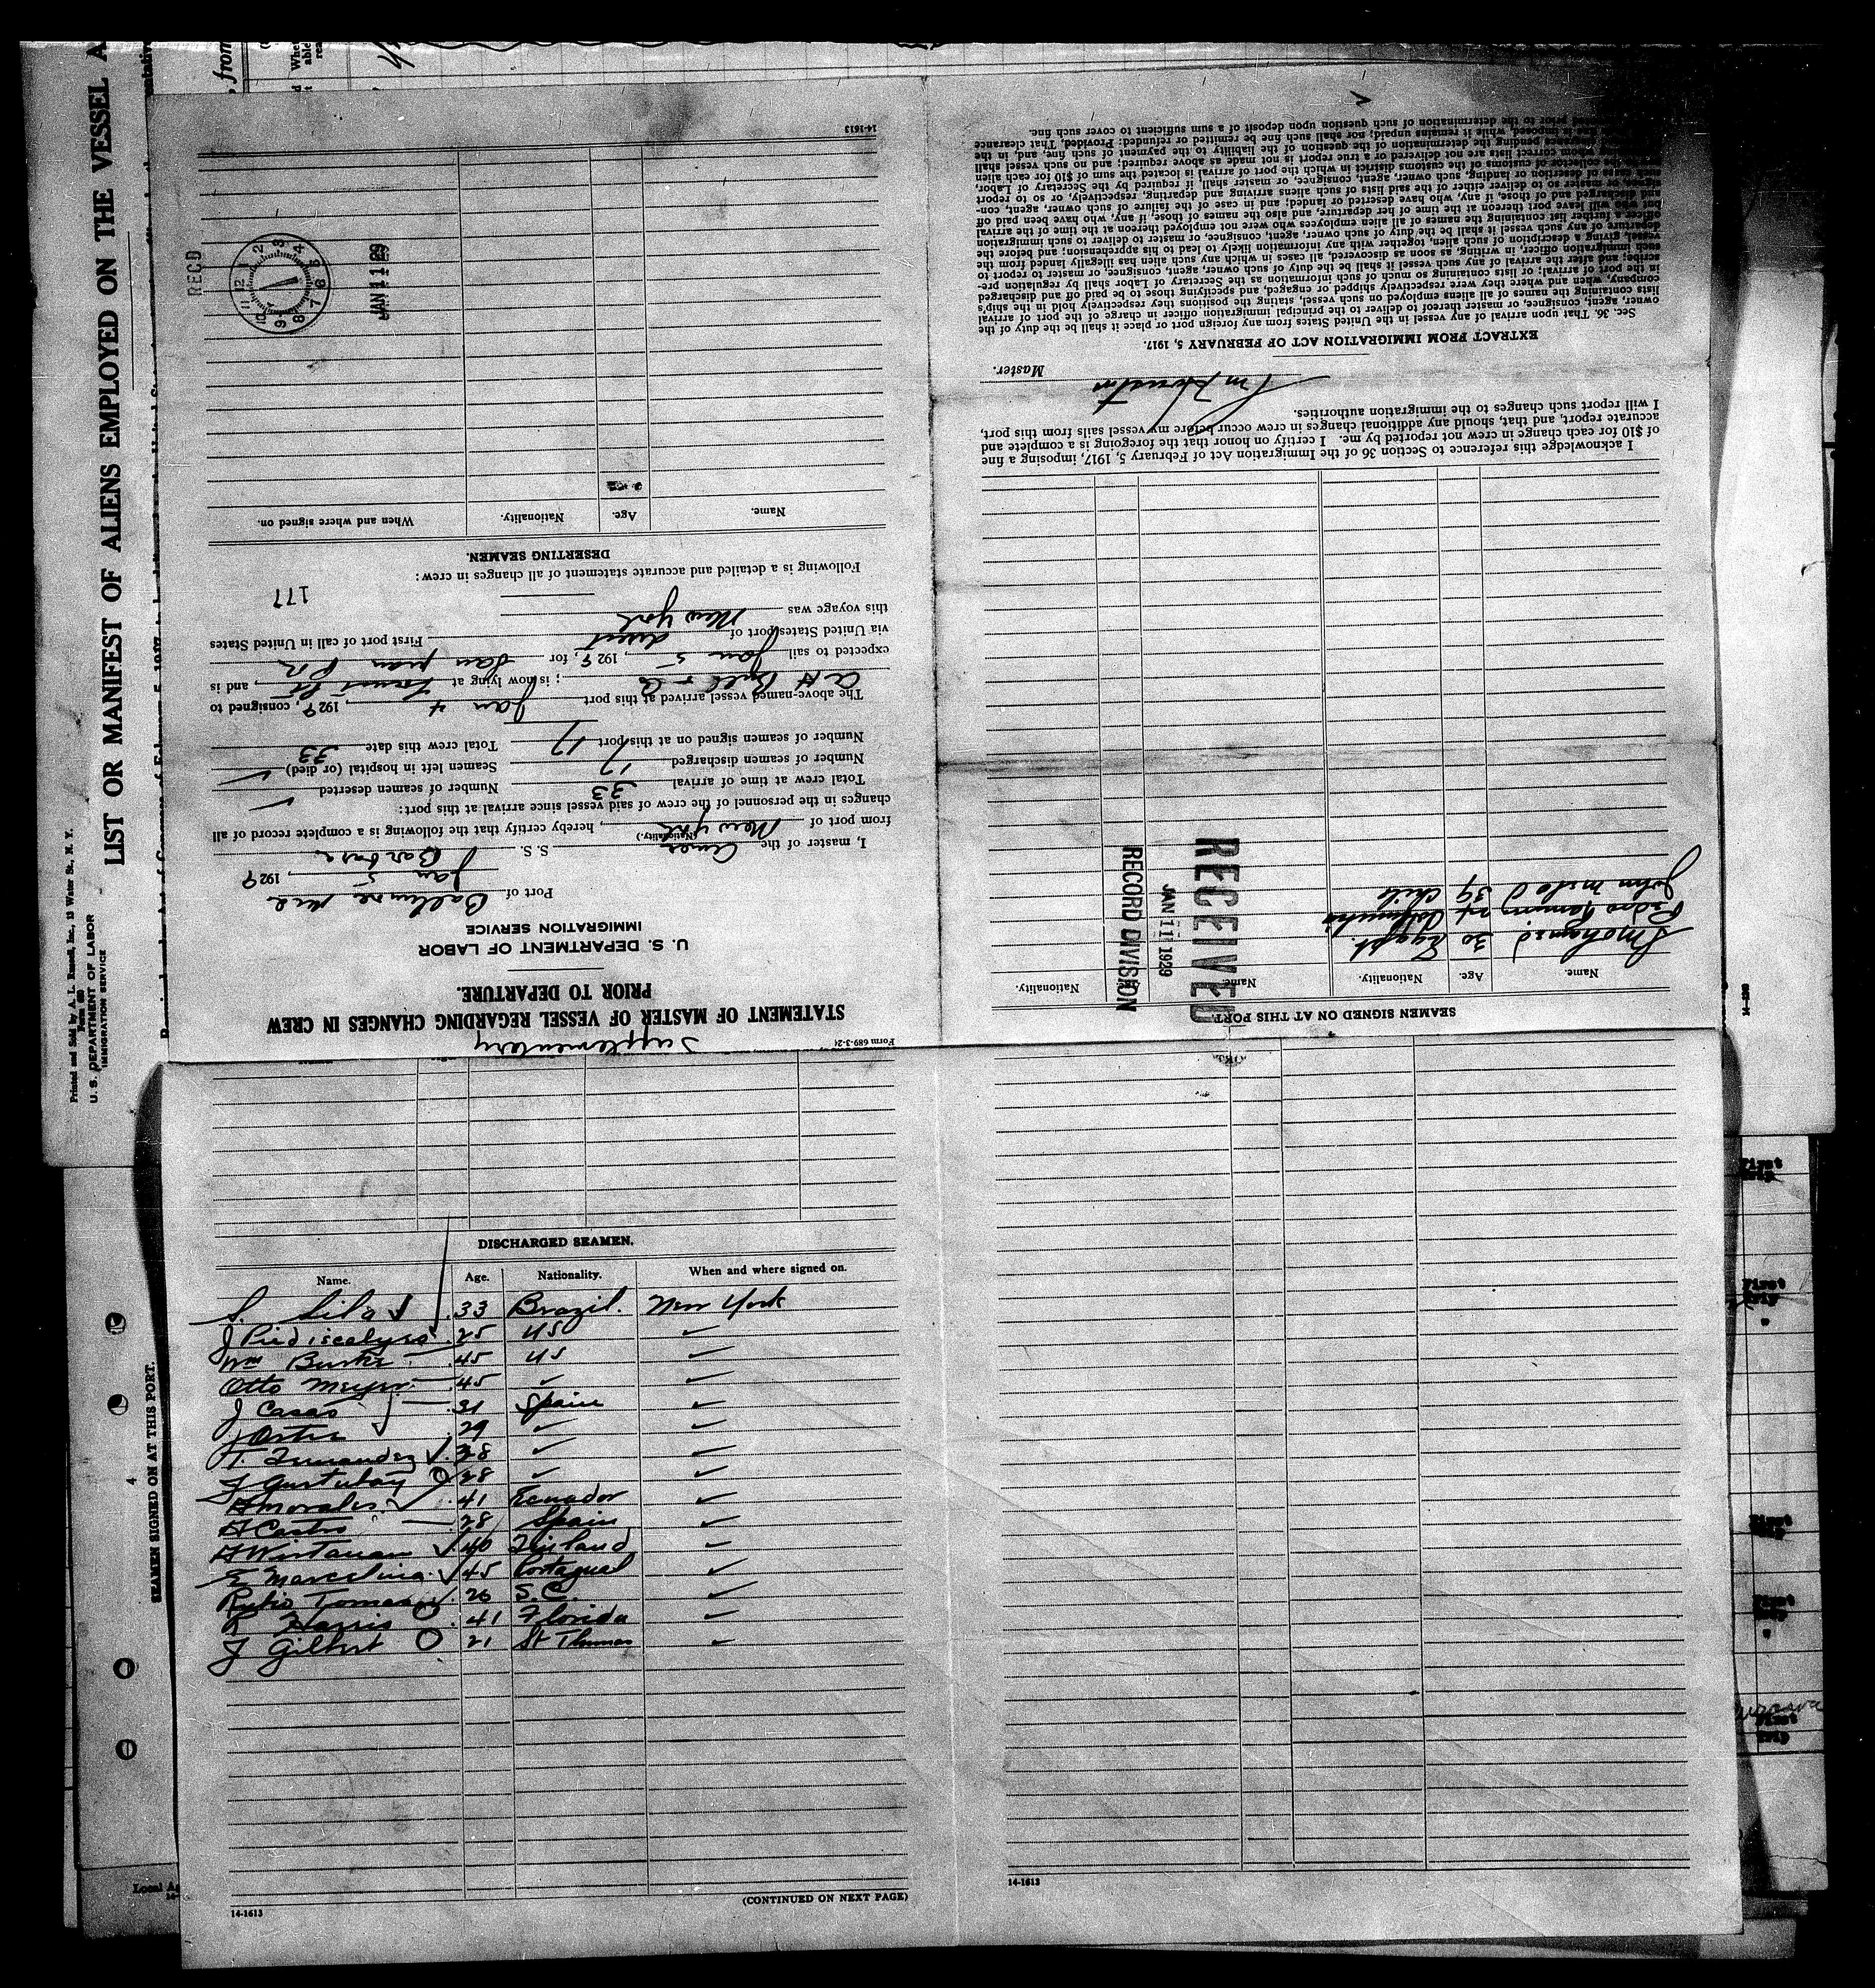 LIST OR MANIFEST OF ALIENS EMPLOYED ON THE VESSEL A
Printed and Sold by A. L. Russell, Inc., 13 Water St., N. Y.
Form 689
U. S. DEPARTMENT OF LABOR
IMMIGRATION SERVICE
Form 689-3-2
Supplementary
STATEMENT OF MASTER OF VESSEL REGARDING CHANGES IN CREW
PRIOR TO DEPARTURE.
U. S. DEPARTMENT OF LABOR
IMMIGRATION SERVICE
Port of Baltimore Md
Jan 5, 1929
I, master of the Amer S. S. Barbara
(Nationality.)
from port of New York, hereby certify that the following is a complete record of all
changes in the personnel of the crew of said vessel since arrival at this port:
Total crew at time of arrival 33 Number of seamen deserted ✓
Number of seamen discharged 17 Seamen left in hospital (or died) ✓
Number of seamen signed on at this port 17 Total crew this date 33
The above-named vessel arrived at this port Jan 4, 1929, consigned to
A H Bull & Co; is now lying at, and is
expected to sail Jan 5, 1929, for San Juan P R
via United States port of direct First port of call in United States
this voyage was New York
177
Following is a detailed and accurate statement of all changes in crew:
DESERTING SEAMEN.
Name. Age. Nationality. When and where signed on.
RECD
JAN 11 29
14-1613
SEAMEN SIGNED ON AT THIS PORT
Name. Age. Nationality. Name. Nationality.
S Mohamed 30 Egypt.
Pedro 24 Columbia
John Milad 39 Chile
RECEIVED
JAN 11 1929
RECORD DIVISION
I acknowledge this reference to Section 36 of the Immigration Act of February 5, 1917, imposing a fine
of $10 for each change in crew not reported by me. I certify on honor that the foregoing is a complete and
accurate report, and that, should any additional changes in crew occur before my vessel sails from this port,
I will report such changes to the immigration authorities.
Master.
EXTRACT FROM IMMIGRATION ACT OF FEBRUARY 5, 1917.
Sec. 36. That upon arrival of any vessel in the United States from any foreign port or place it shall be the duty of the
owner, agent, consignee, or master thereof to deliver to the principal immigration officer in charge of the port of arrival
lists containing the names of all aliens employed on such vessel, stating the positions they respectively hold in the ship's
company, when and where they were respectively shipped or engaged, and specifying those to be paid off and discharged
in the port of arrival; or lists containing so much of such information as the Secretary of Labor shall by regulation pre-
scribe; and after the arrival of any such vessel it shall be the duty of such owner, agent, consignee, or master to report to
such immigration officer, in writing, as soon as discovered, all cases in which any such alien has illegally landed from the
vessel, giving a description of such alien, together with any information likely to lead to his apprehension; and before the
departure of any such vessel it shall be the duty of such owner, agent, consignee, or master to deliver to such immigration
officer a further list containing the names of all alien employees who were not employed thereon at the time of the arrival
but who will leave port thereon at the time of her departure, and also the names of those, if any, who have been paid off
and discharged and of those, if any, who have deserted or landed; and in case of the failure of such owner, agent, con-
signee, or master so to deliver either of the said lists of such aliens arriving and departing, respectively, or so to report
such cases of desertion or landing, such owner, agent, consignee, or master shall, if required by the Secretary of Labor,
the collector of customs of the customs district in which the port of arrival is located the sum of $10 for each alien
whom correct lists are not delivered or a true report is not made as above required; and no such vessel shall
pending the determination of the question of the liability to the payment of such fine, and, in the
is imposed, while it remains unpaid; nor shall such fine be remitted or refunded: Provided, That clearance
prior to the determination of such question upon deposit of a sum sufficient to cover such fine.
DISCHARGED SEAMEN.
Name. Age. Nationality. When and where signed on.
S. Silva 33 Brazil. New York
J 25 US ✓
Wm Burke 45 US ✓
Otto Meyer 45 ✓ ✓
J Casas 31 Spain ✓
J 29 ✓ ✓
T. Fernandez 38 ✓ ✓
F 28 ✓ ✓
Morales 41 Ecuador ✓
Castro 28 Spain ✓
40 Finland ✓
E Marcelina 45 Portagual ✓
26 S.C. ✓
R Harris 41 Florida ✓
J Gilbert 21 St Thomas ✓
(CONTINUED ON NEXT PAGE)
14-1613
14-1613
4
SEAMEN SIGNED ON AT THIS PORT.
First
Trip
First
Trip
First
Trip
First
Trip
First
Trip